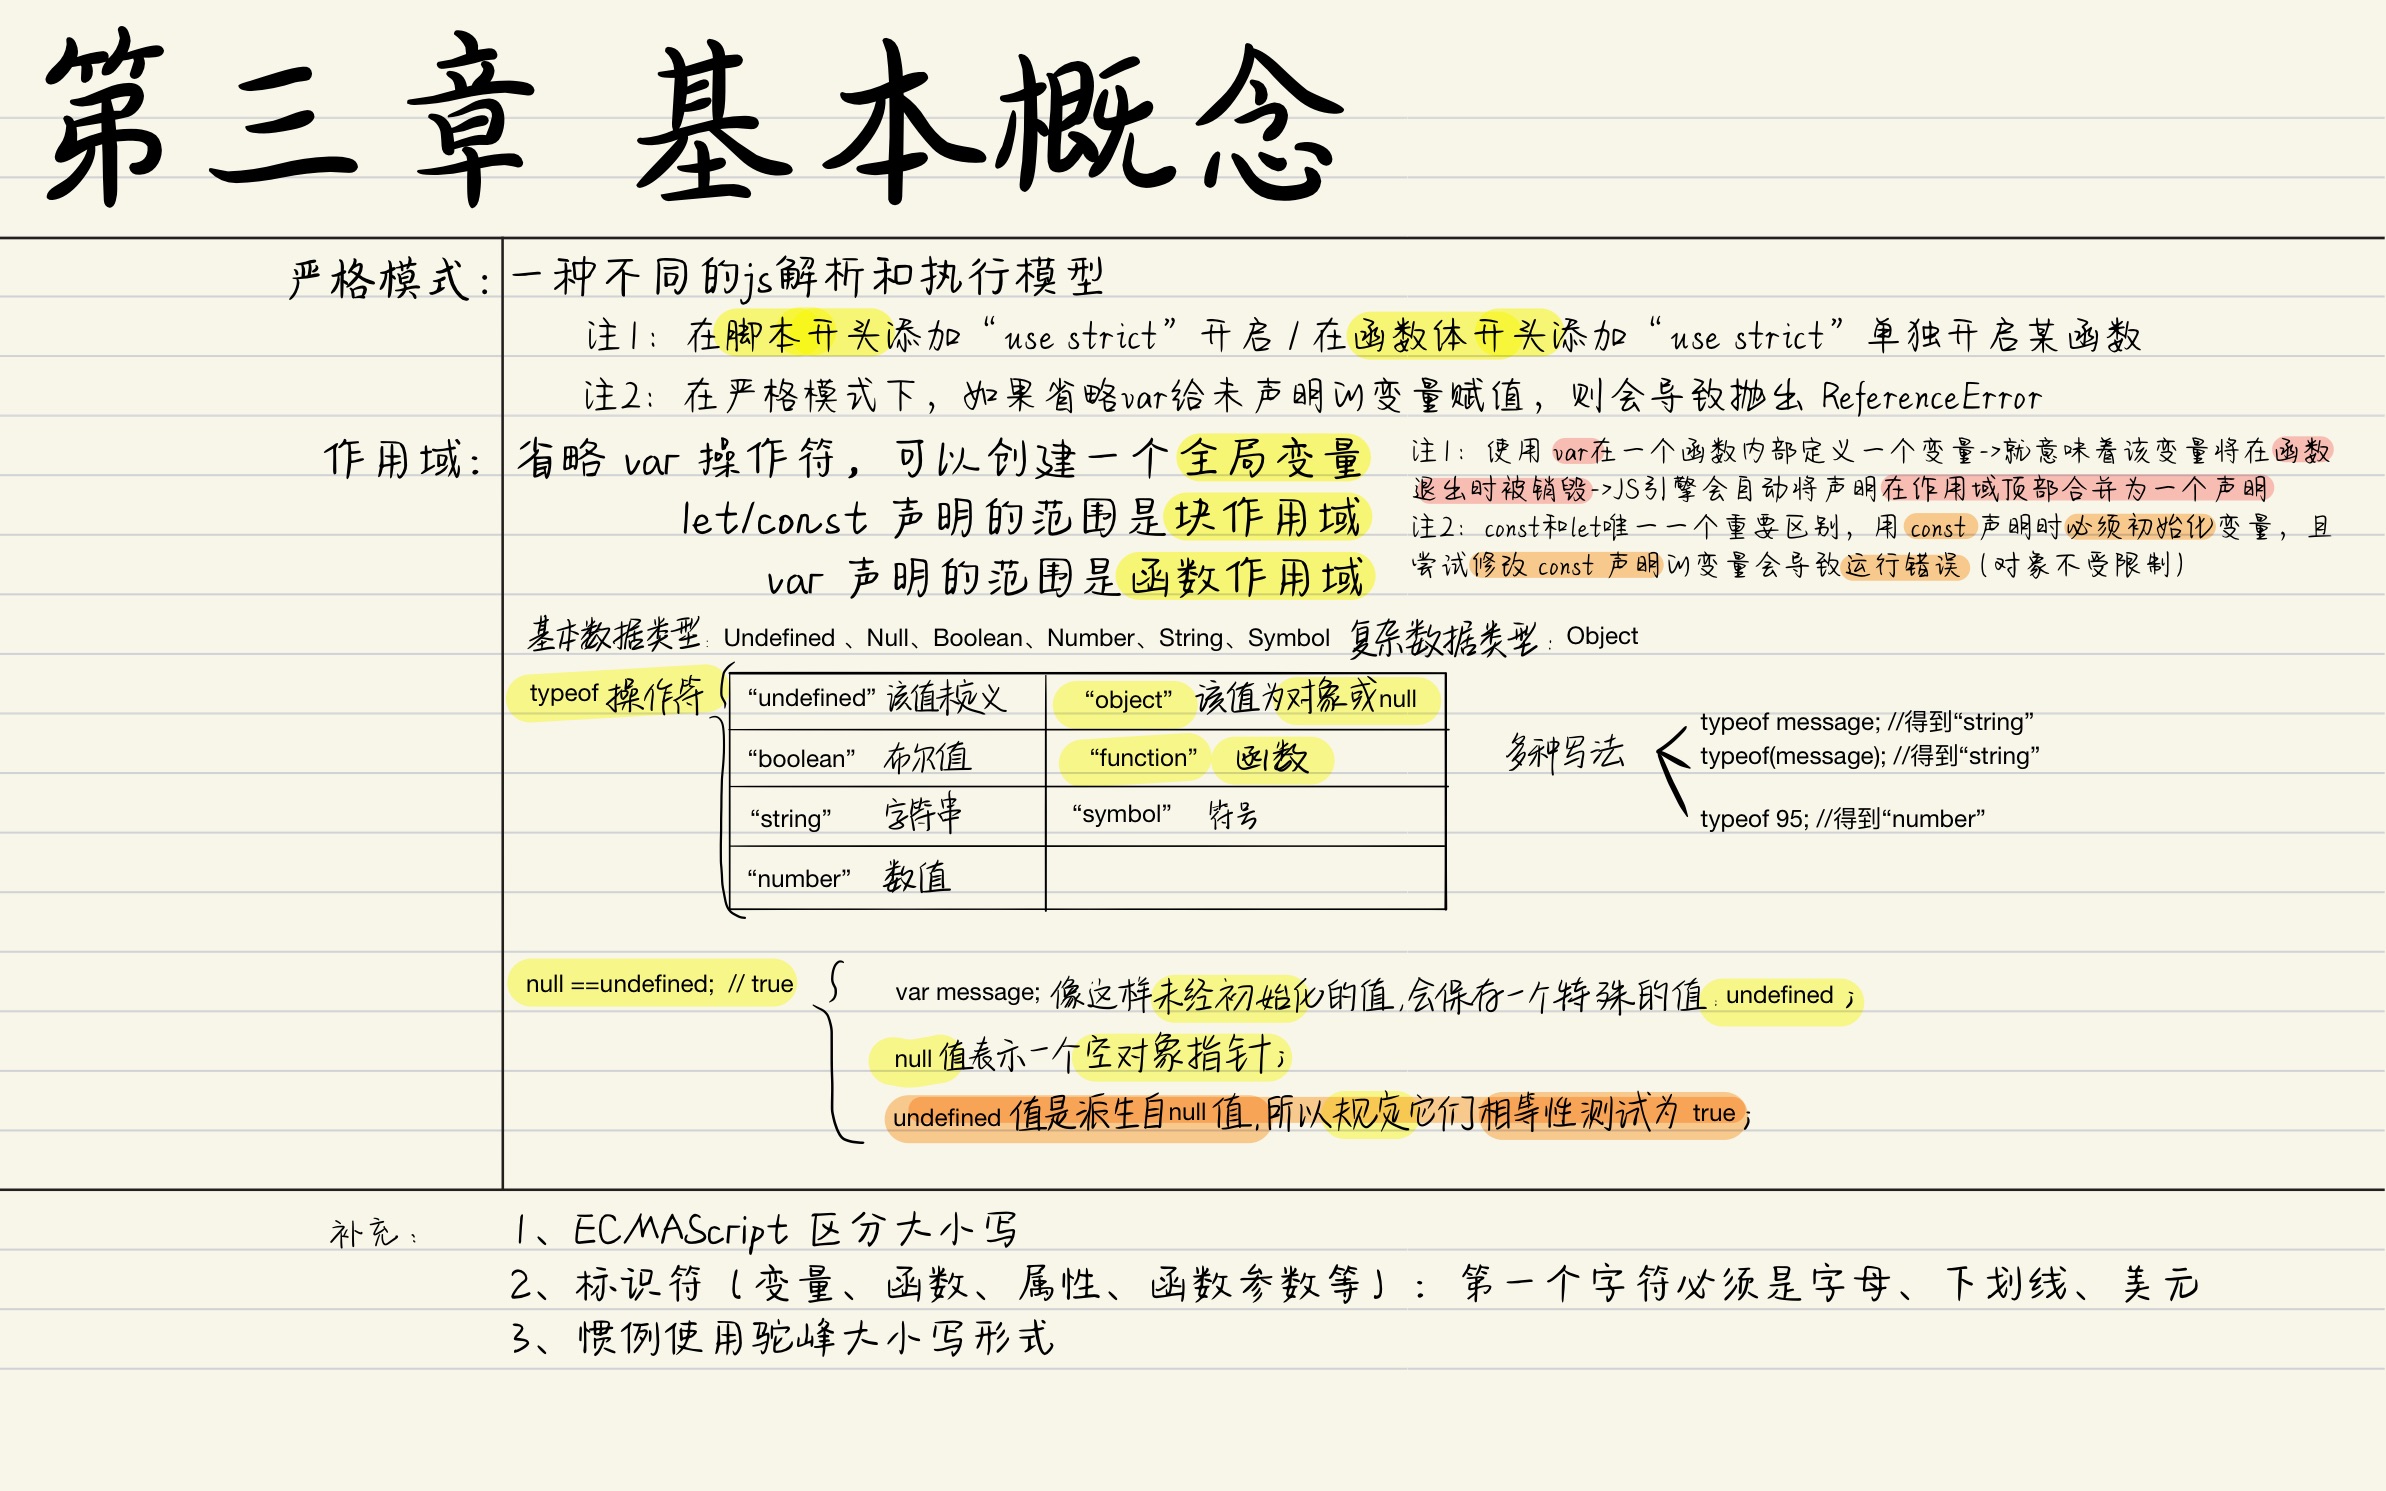 第三章 基本概念
严格模式：一种不同的js解析和执行模型
注1：在脚本开头添加“use strict”开启/在函数体开头添加“use strict”单独开启某函数
注2：在严格模式下，如果省略var给未声明的变量赋值，则会导致抛出 ReferenceError
作用域：省略 var 操作符，可以创建一个全局变量
let/const 声明的范围是块作用域
var 声明的范围是函数作用域
注1：使用 var在一个函数内部定义一个变量->就意味着该变量将在函数
退出时被销毁->JS引擎会自动将声明在作用域顶部合并为一个声明
注2：const和let唯一一个重要区别，用 const 声明时必须初始化变量，且
尝试修改 const 声明的变量会导致运行错误（对象不受限制）
基本数据类型：Undefined 、Null、Boolean、Number、String、Symbol 复杂数据类型：Object
typeof 操作符
“undefined” 该值未定义 “object” 该值为对象或null
“boolean” 布尔值 “function” 函数
“string” 字符串 “symbol” 符号
“number” 数值
多种写法
typeof message; //得到“string”
typeof(message); //得到“string”
typeof 95; //得到“number”
null ==undefined; // true
var message; 像这样未经初始化的值,会保存一个特殊的值：undefined ;
null 值表示一个空对象指针;
undefined 值是派生自null 值,所以规定它们相等性测试为 true ;
补充：
1、ECMAScript 区分大小写
2、标识符（变量、函数、属性、函数参数等）：第一个字符必须是字母、下划线、美元
3、惯例使用驼峰大小写形式